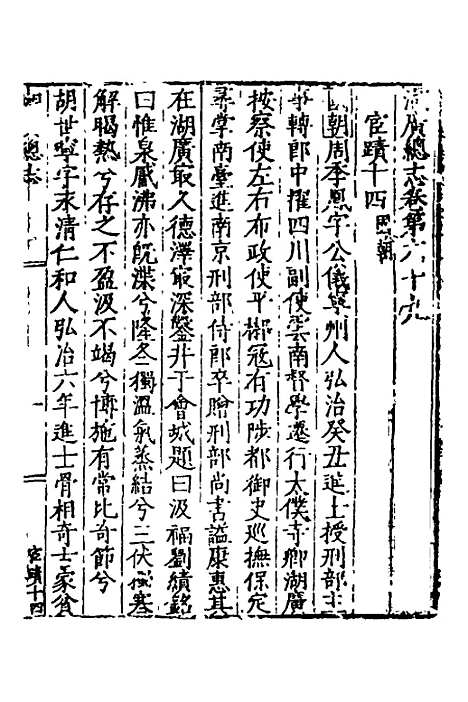 湖廣總志卷第六十九
宦蹟十四 國朝
國朝周季鳳字公儀寧州人弘治癸丑進士授刑部主
事轉郎中擢四川副使雲南督學遷行太僕寺卿湖廣
按察使左右布政使平郴寇有功陟都御史巡撫保定
尋掌南臺進南京刑部侍郎卒贈刑部尚書謚康惠其
在湖廣最久德澤㝡深鑿井于會城題曰汲福劉績銘
曰惟泉觱沸亦既渫兮隆冬獨溫氣蒸結兮三伏
解暍熱兮存之不盈汲不竭兮博施有常比奇節兮
胡世寧字永清仁和人弘治六年進士骨相奇士家貧
湖 總志
宦蹟十四